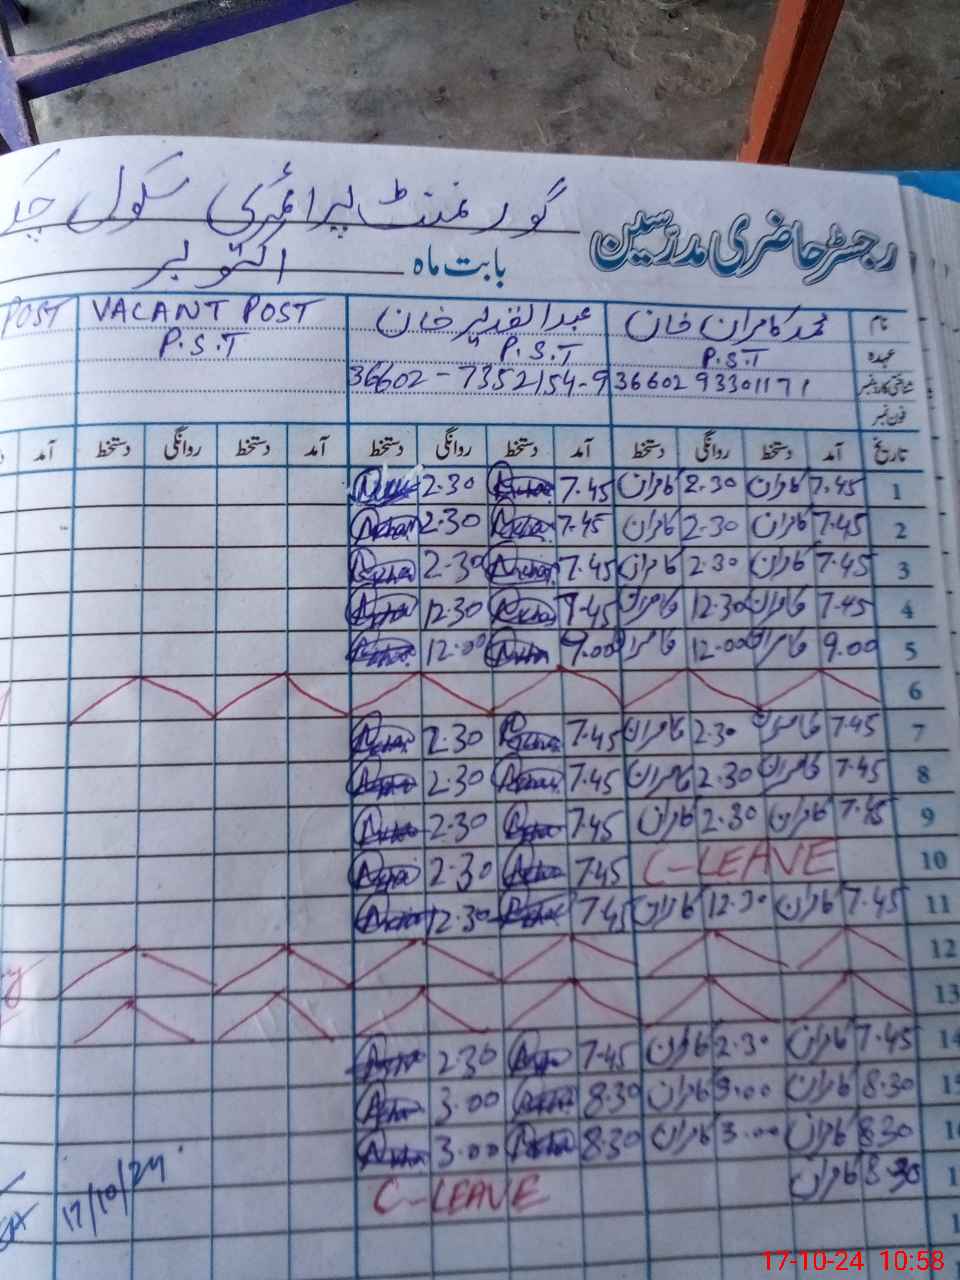 گورنمنٹ پرائمری سکول چک
رجسٹر حاضری مدرسین
بابت ماہ اکتوبر
نام محمد کامران خان عبدالقدیر خان VACANT POST POST
عہدہ P.S.T P.S.T P.S.T
شناختی کارڈ نمبر 36602 93301171 36602-7352154-9
فون نمبر
تاریخ آمد دستخط روانگی دستخط آمد دستخط روانگی دستخط آمد دستخط روانگی دستخط آمد
1 7.45 کامران 2.30 کامران 7.45 2.30
2 7.45 کامران 2.30 کامران 7.45 2.30
3 7.45 کامران 2.30 کامران 7.45 2.30
4 7.45 کامران 12.30 کامران 7.45 12.30
5 9.00 کامران 12.00 کامران 9.00 12.00
6
7 7.45 کامران 2.30 کامران 7.45 2.30
8 7.45 کامران 2.30 کامران 7.45 2.30
9 7.45 کامران 2.30 کامران 7.45 2.30
10 C-LEAVE 7.45 2.30
11 7.45 کامران 12.30 کامران 7.45 12.30
12
13
14 7.45 کامران 2.30 کامران 7.45 2.30
15 8.30 کامران 3.00 کامران 8.30 3.00
16 8.30 کامران 3.00 کامران 8.30 3.00
8.30 کامران C-LEAVE
17/10/24
17-10-24 10:58